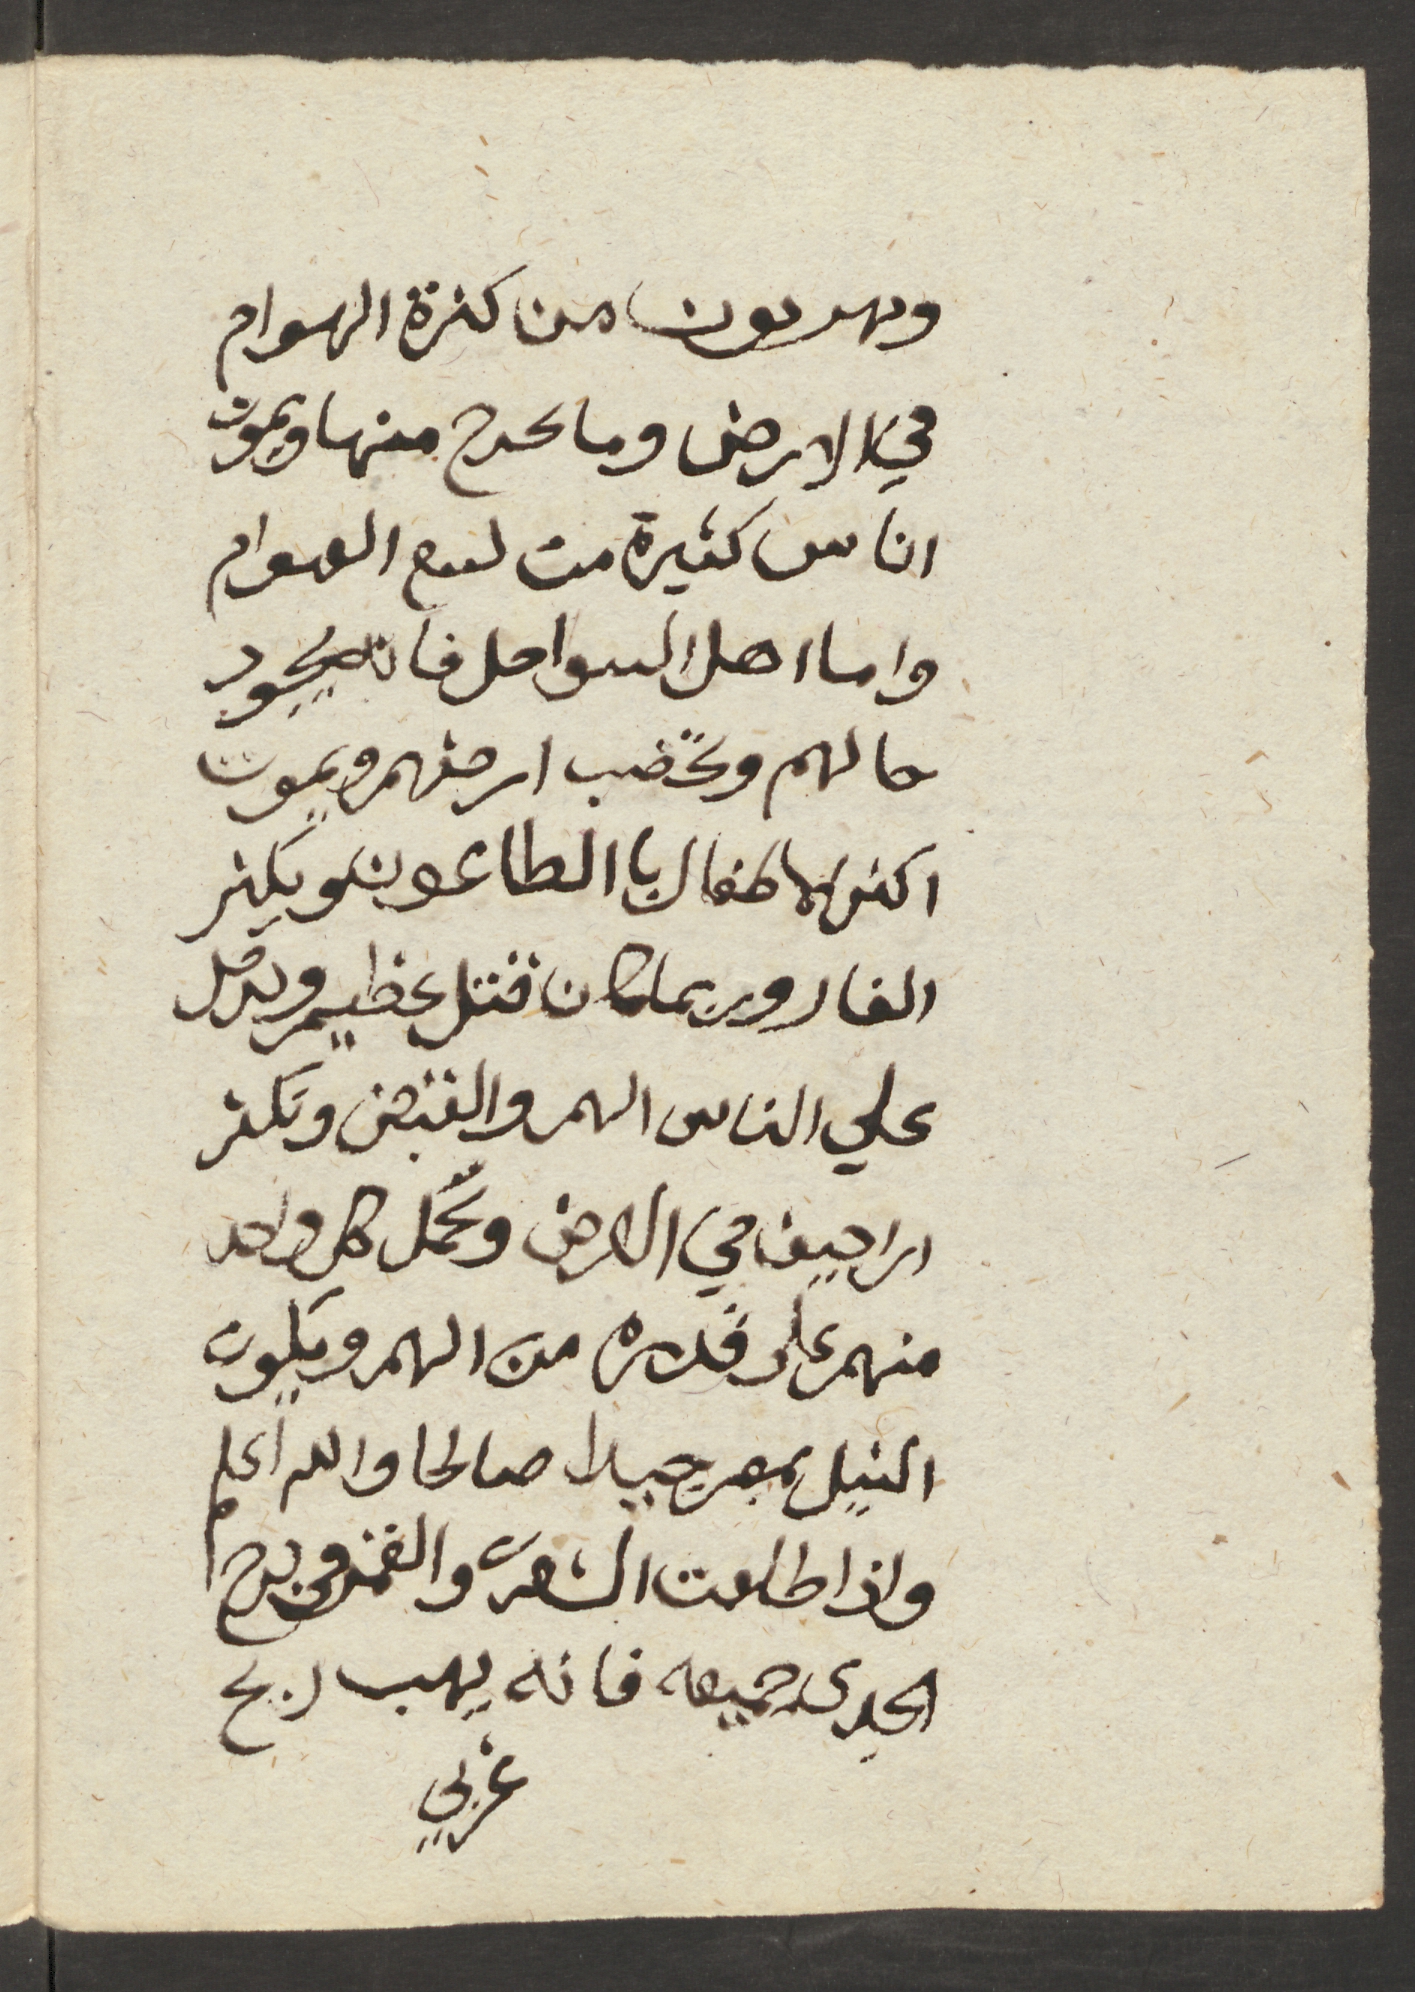 ويهربون من كثرة الهوام
في الارض وما يخرج منها ويموت
اناس كثيرة من لسع الهوام
واما اهل السواحل فانه يجود
حالهم وتخضب ارضهم ويموت
اكثر الاطفال با الطاعون ويكثر
الفار وربما كان قتل عظيم ويدخل
علي الناس الهم والقبض وتكثر
اراجيف في الارض وتحمل كل واحد
منهم على قدره من الهم ويكون
النيل بمصر جيدا صالحا والله اعلم
واذا طلعت الشعرى والقمر في برج
الجدى جميعه فانه يهب ريح
غربي